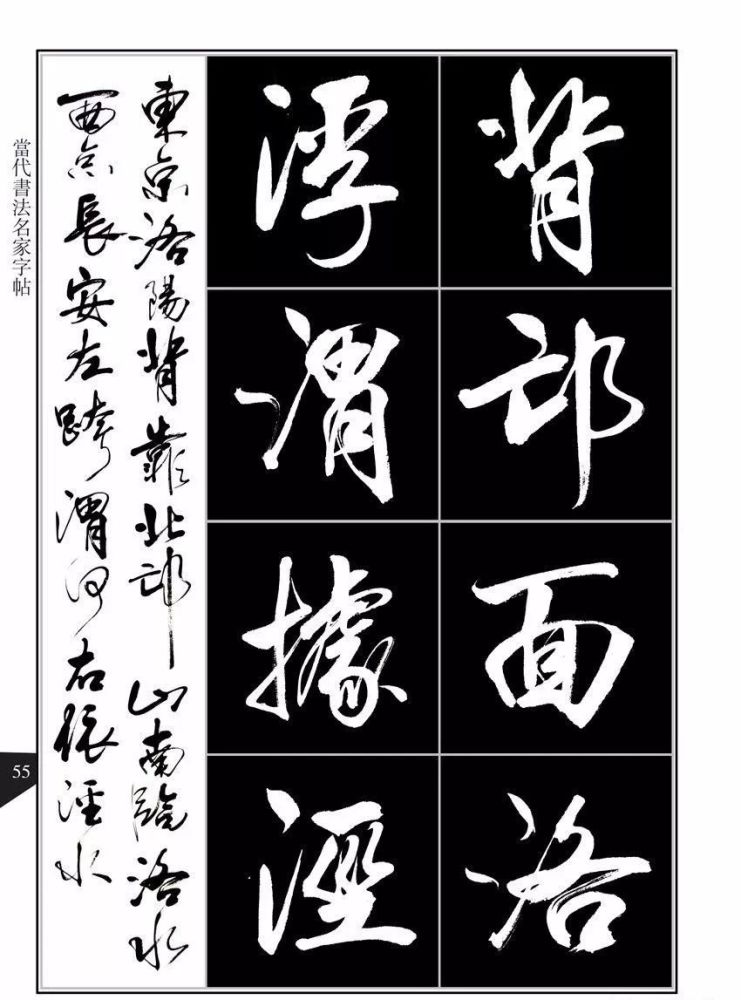 背邙面洛
浮渭據涇
東京洛陽背靠北邙山南臨洛水
西京長安左跨渭河右涇水
當代書法名家字帖
55